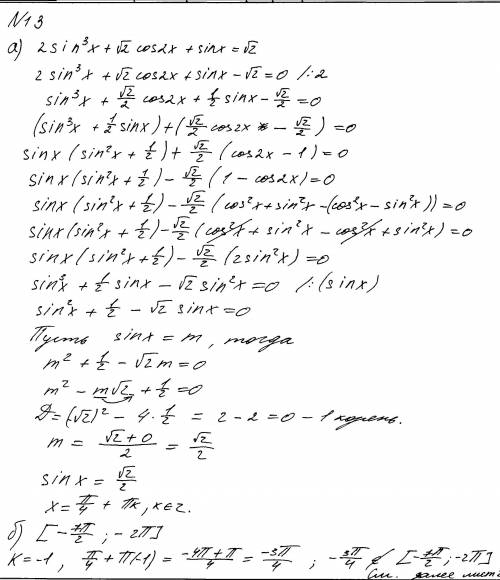 N13
а) 2sin³x + √2 cos2x + sinx = √2
2sin³x + √2 cos2x + sinx - √2 = 0 /:2
sin³x + √2/2 cos2x + 1/2 sinx - √2/2 = 0
(sin³x + 1/2 sinx) + (√2/2 cos2x - √2/2) = 0
sinx (sin²x + 1/2) + √2/2 (cos2x - 1) = 0
sinx (sin²x + 1/2) - √2/2 (1 - cos2x) = 0
sinx (sin²x + 1/2) - √2/2 (cos²x + sin²x - (cos²x - sin²x)) = 0
sinx (sin²x + 1/2) - √2/2 (cos²x + sin²x - cos²x + sin²x) = 0
sinx (sin²x + 1/2) - √2/2 (2sin²x) = 0
sin³x + 1/2 sinx - √2 sin²x = 0 /:(sinx)
sin²x + 1/2 - √2 sinx = 0
Пусть sinx = m, тогда
m² + 1/2 - √2m = 0
m² - m√2 + 1/2 = 0
D = (√2)² - 4·1/2 = 2 - 2 = 0 - 1 корень.
m = (√2 + 0)/2 = √2/2
sinx = √2/2
x = π/4 + πk, k∈z.
б) [-7π/2; -2π]
K = -1, π/4 + π(-1) = (-4π + π)/4 = -3π/4; -3π/4 ∉ [-7π/2; -2π]
См. далее лист